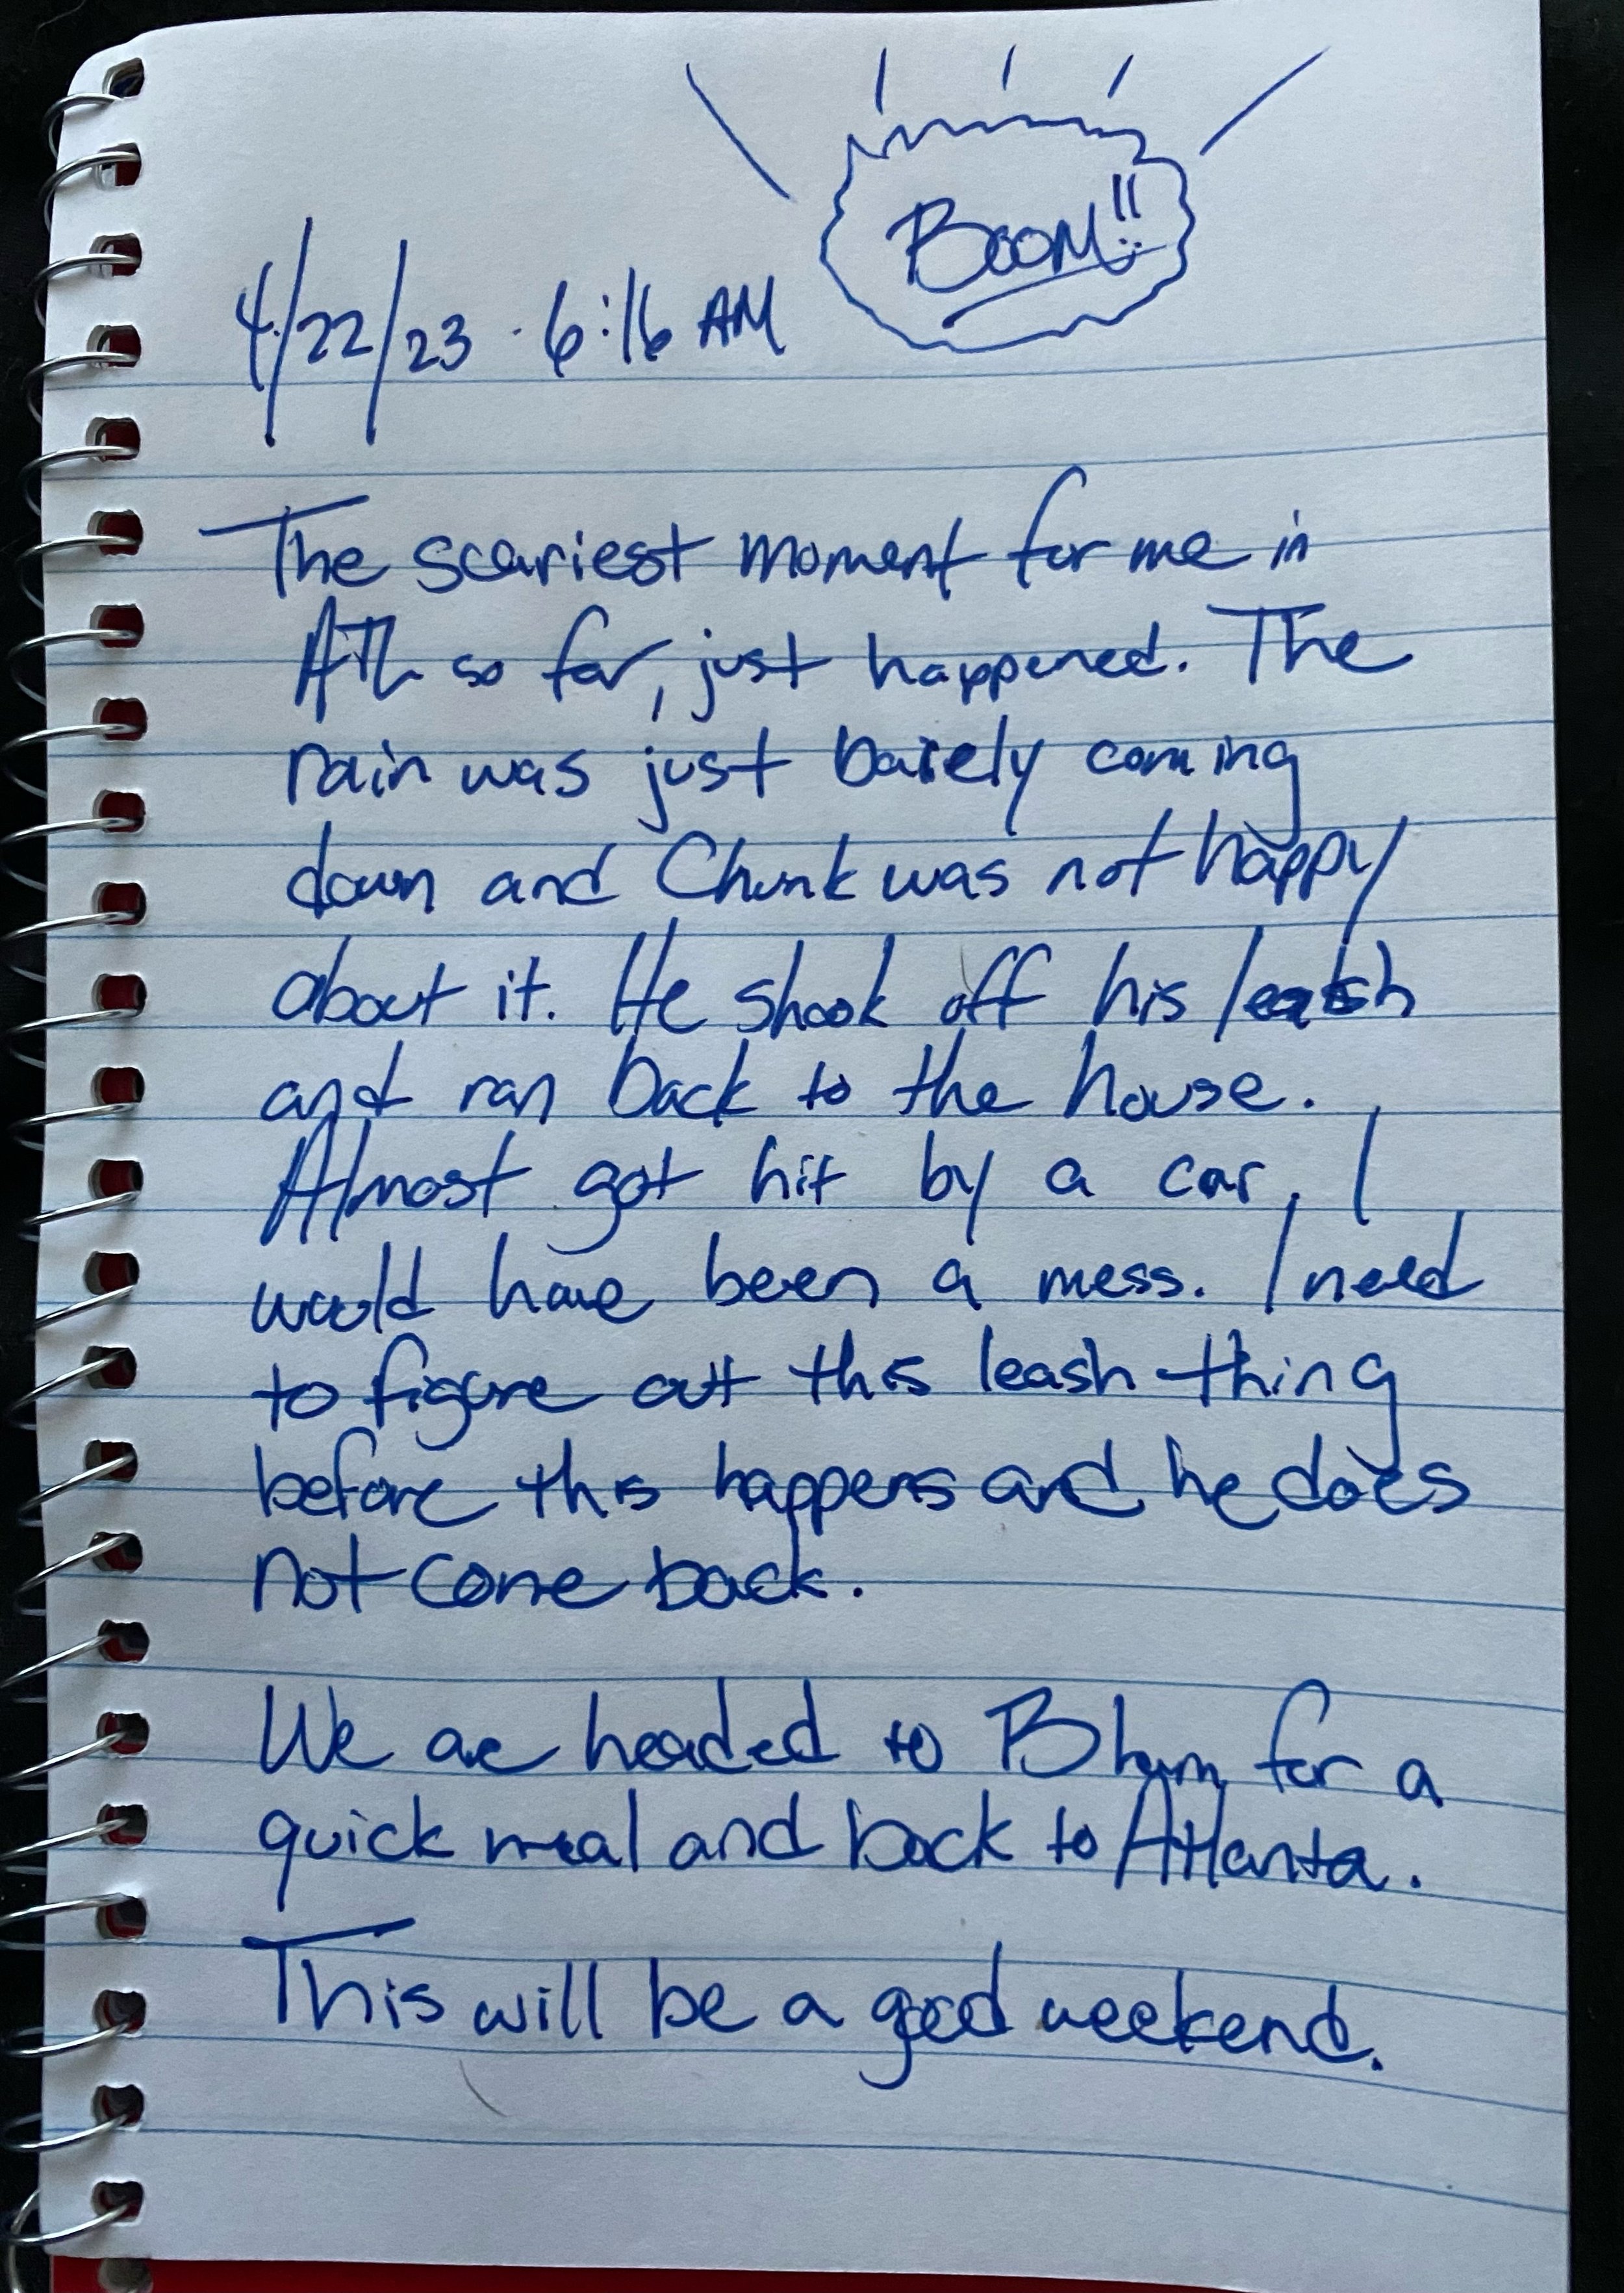 BOOM!!
4/22/23 · 6:16 AM
The scariest moment for me in
ATL so far, just happened. The
rain was just barely coming
down and Chunk was not happy
about it. He shook off his leash
and ran back to the house.
Almost got hit by a car. I
would have been a mess. I need
to figure out this leash thing
before this happens and he does
not come back.
We are headed to Bham for a
quick meal and back to Atlanta.
This will be a good weekend.